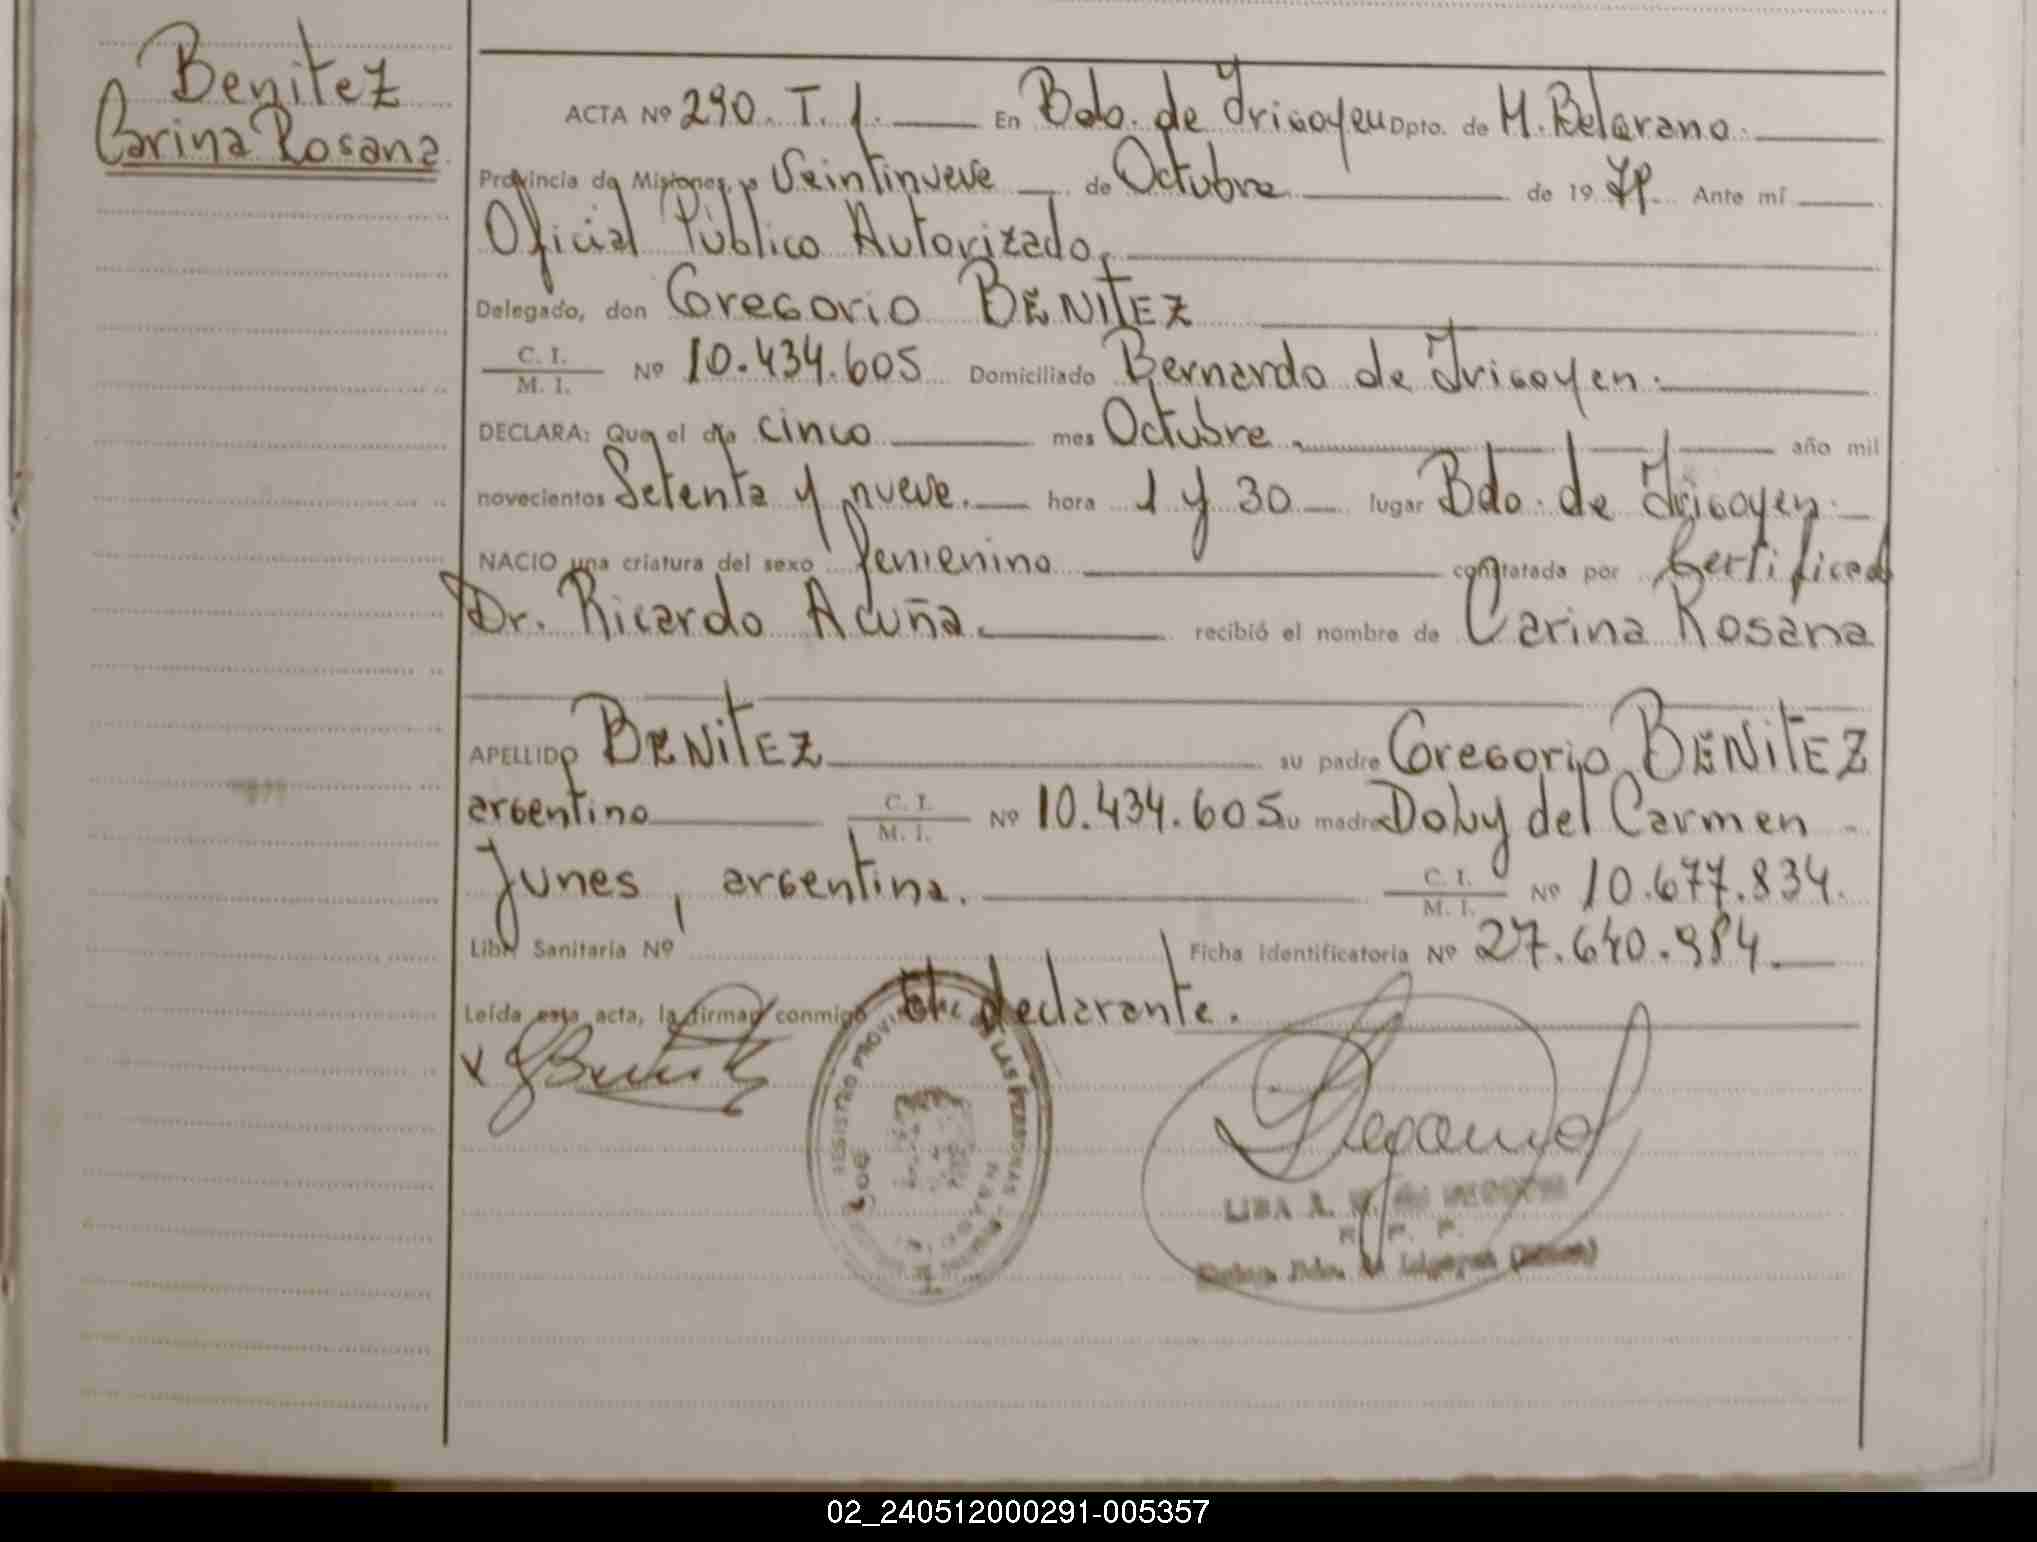 Benitez
Carina Rosana
ACTA Nº 290. T. 1. En Bdo. de Irigoyen Dpto. de M. Belgrano.
Provincia de Misiones, a Veintinueve de Octubre de 19 79 Ante mí
Oficial Público Autorizado.
Delegado, don Gregorio BENITEZ
C. I.
M. I. Nº 10.434.605 Domiciliado Bernardo de Irigoyen.
DECLARA: Que el día cinco mes Octubre año mil
novecientos Setenta y nueve. hora 1 y 30 lugar Bdo. de Irigoyen.
NACIO una criatura del sexo femenino constatada por Certificad
Dr. Ricardo Acuña. recibió el nombre de Carina Rosana
APELLIDO BENITEZ su padre Gregorio BENITEZ
argentino C. I.
M. I. Nº 10.434.605 su madre Dolly del Carmen
Junes, argentina. C. I.
M. I. Nº 10.677.834.
Libr. Sanitaria Nº Ficha identificatoria Nº 27.640.984
Leída esta acta, la firman conmigo El declarante.
REGISTRO PROVINCIAL DE LAS PERSONAS
LIBA